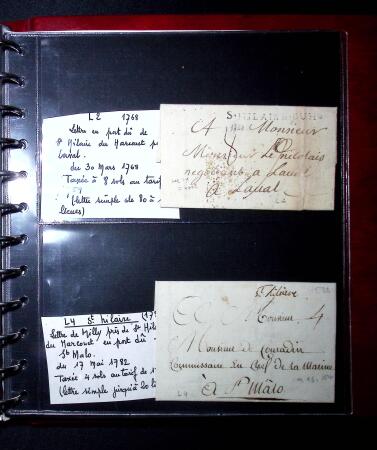 L2 1768
Lettre en port dû de
St Hilaire du Harcourt p
Laval.
du 30 Mars 1768
Taxée à 8 sols au tarif
(lettre simple de 80 à 1
lieues)
S.HILAIRE
A Monsieur
Monsieur Le
negociant a Laval
a Laval
L4 St hilaire (17
Lettre de Milly près de St Hil
du Harcouet en port dû
St Malo.
du 17 Mai 1782
Taxée 4 sols au tarif de 1
(lettre simple jusqu'à 20 li
St hilaire
A Monsieur 4
Monsieur de
Commissaire en Chef de la Marine
A St Mâlo
L4